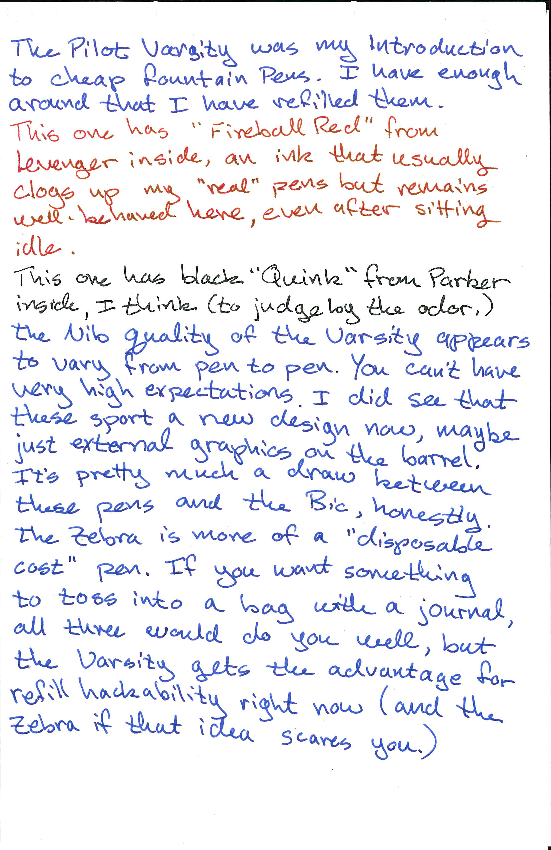 The Pilot Varsity was my Introduction
to cheap fountain Pens. I have enough
around that I have refilled them.
This one has "Fireball Red" from
Levenger inside, an ink that usually
clogs up my "real" pens but remains
well-behaved here, even after sitting
idle.
This one has black "Quink" from Parker
inside, I think (to judge by the odor.)
the Nib quality of the Varsity appears
to vary from pen to pen. You can't have
very high expectations. I did see that
these sport a new design now, maybe
just external graphics on the barrel.
It's pretty much a draw between
these pens and the Bic, honestly.
The Zebra is more of a "disposable
cost" pen. If you want something
to toss into a bag with a journal,
all three would do you well, but
the Varsity gets the advantage for
refill hackability right now (and the
Zebra if that idea scares you.)